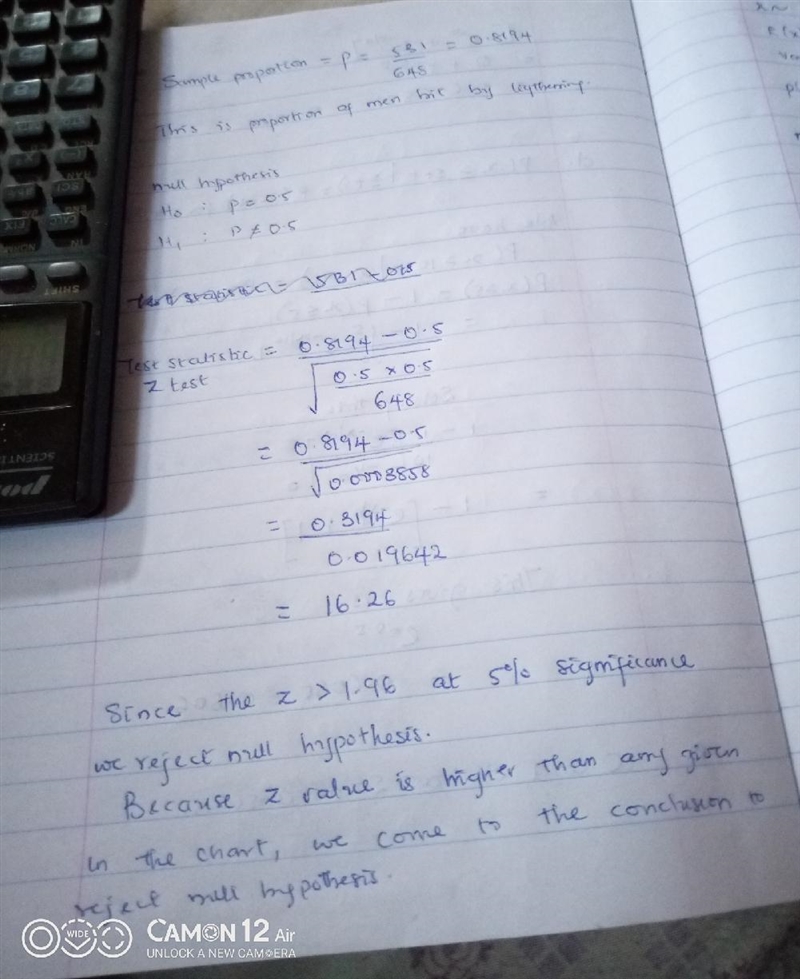 Sample proportion = P = 531/648 = 0.8194
This is proportion of men hit by lightening.
null hypothesis
H₀ : P = 0.5
H₁ : P ≠ 0.5
Test statistic = 0.8194 − 0.5
Z test
√ 0.5 × 0.5
648
= 0.8194 − 0.5
√0.0003858
= 0.3194
0.019642
= 16.26
Since the z > 1.96 at 5% significance
we reject null hypothesis.
Because z value is higher than any given
in the chart, we come to the conclusion to
reject null hypothesis.
SHIFT
WIDE
CAMON 12 Air
UNLOCK A NEW CAMERA